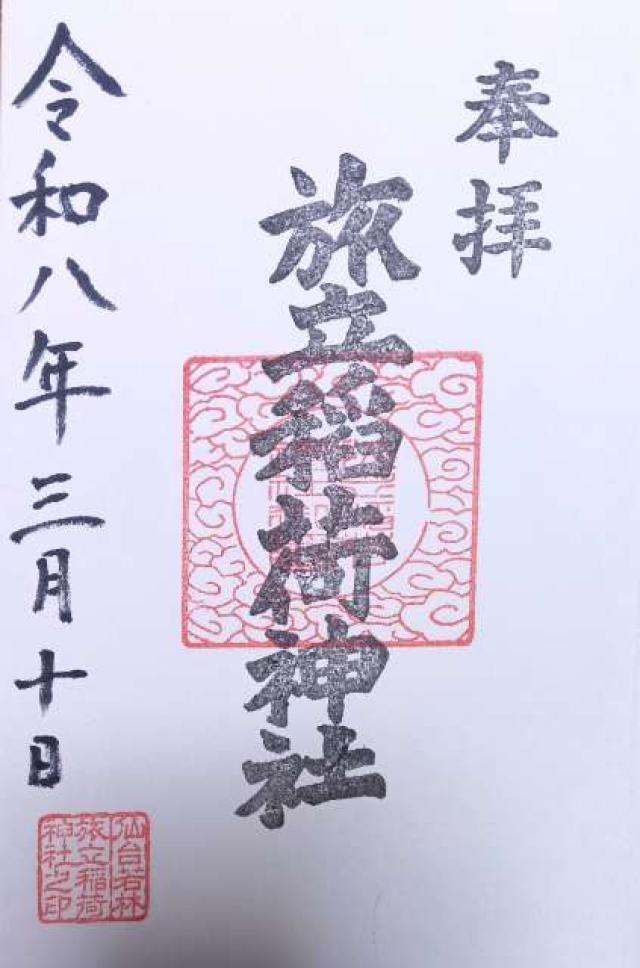 奉拝
旅立稲荷神社
令和八年三月十日
仙台若林
旅立稲荷
神社之印